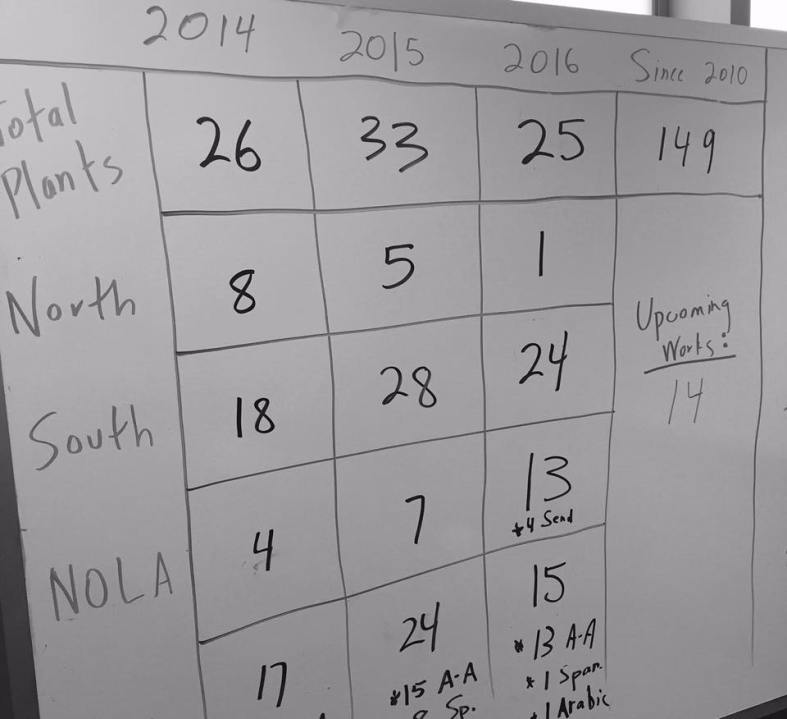 2014 2015 2016 Since 2010
Total
Plants
26 33 25 149
North 8 5 1
Upcoming
Works:
14
South 18 28 24
NOLA 4 7 13
*4 Send
17 24 15
*15 A-A
Sp.
* 13 A-A
* 1 Span.
*1 Arabic